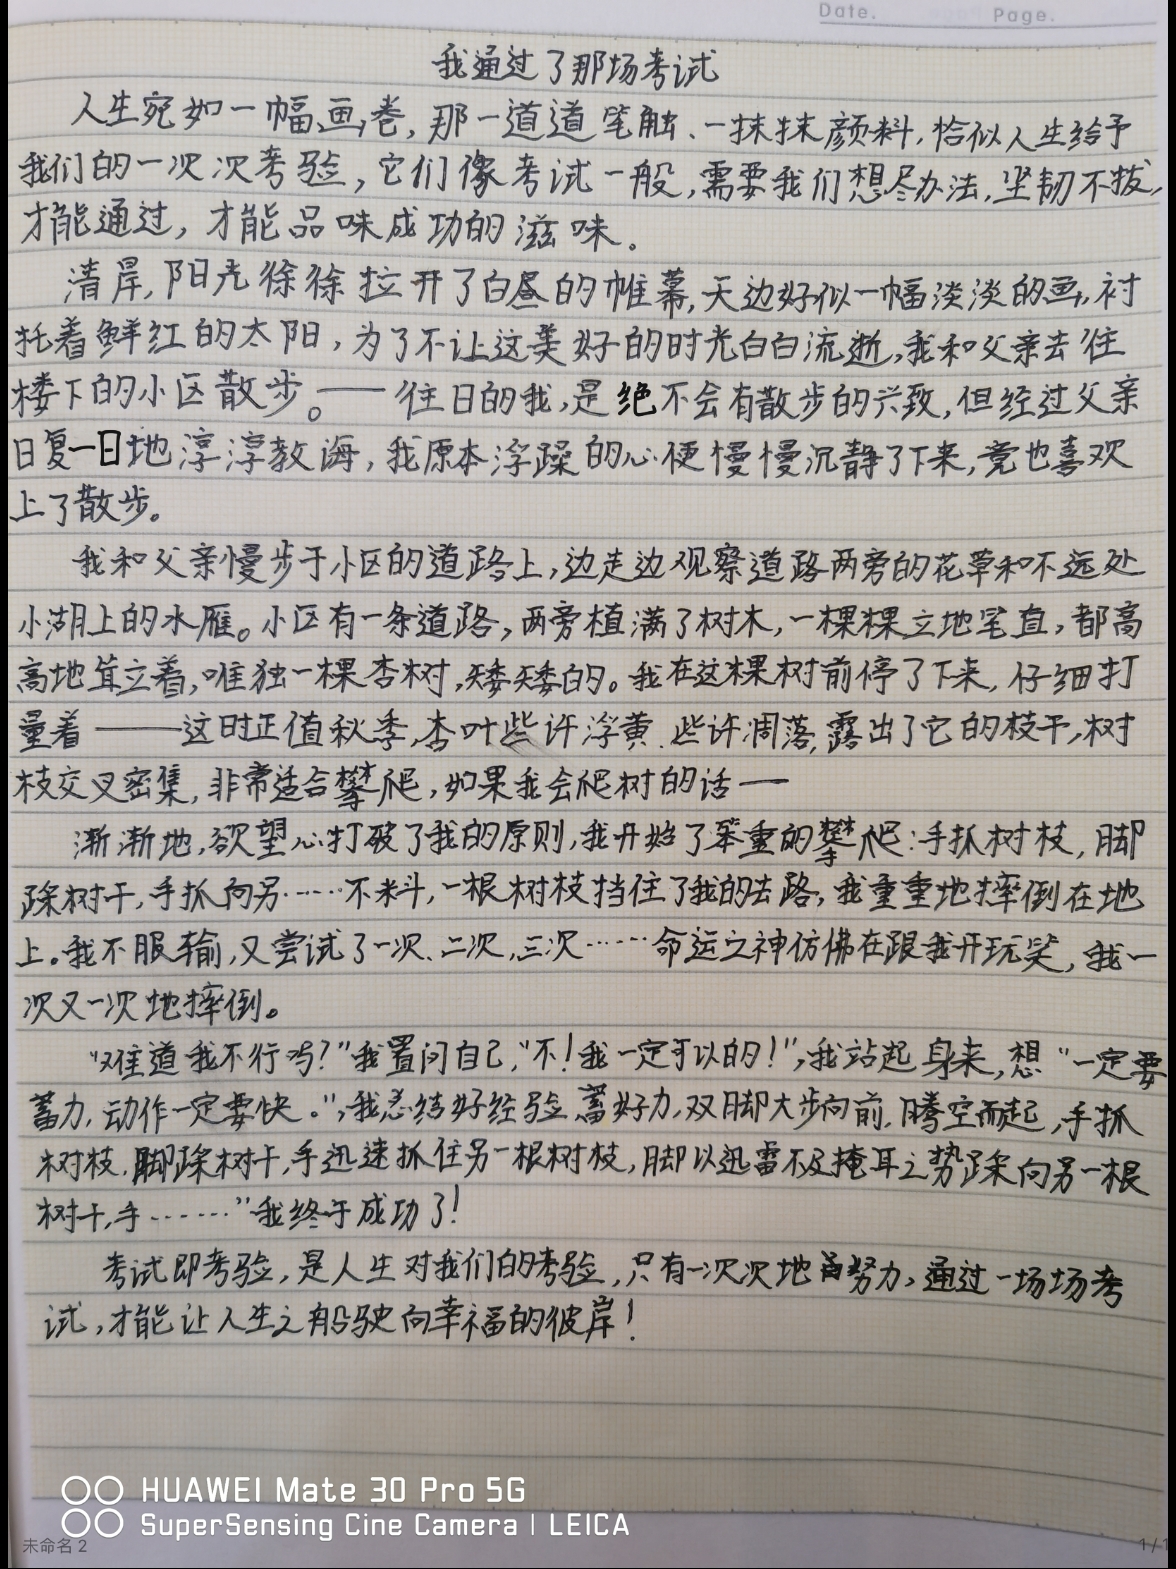 Date.    Page.
我通过了那场考试
人生宛如一幅画卷，那一道道笔触、一抹抹颜料，恰似人生给予
我们的一次次考验，它们像考试一般，需要我们想尽办法，坚韧不拔，
才能通过，才能品味成功的滋味。
清晨，阳光徐徐拉开了白昼的帷幕，天边好似一幅淡淡的画，衬
托着鲜红的太阳，为了不让这美好的时光白白流逝，我和父亲去往
楼下的小区散步。——往日的我，是绝不会有散步的兴致，但经过父亲
日复一日地淳淳教诲，我原本浮躁的心便慢慢沉静了下来，竟也喜欢
上了散步。
我和父亲慢步于小区的道路上，边走边观察道路两旁的花草和不远处
小湖上的水雁。小区有一条道路，两旁植满了树木，一棵棵立地笔直，都高
高地耸立着，唯独一棵杏树，矮矮的。我在这棵树前停了下来，仔细打
量着——这时正值秋季，杏叶些许浮黄、些许凋落，露出了它的枝干，树
枝交叉密集，非常适合攀爬，如果我会爬树的话—
渐渐地，欲望心打破了我的原则，我开始了笨重的攀爬：手抓树枝，脚
踩树干，手抓向另……不料，一根树枝挡住了我的去路，我重重地摔倒在地
上。我不服输，又尝试了一次、二次，三次……命运之神仿佛在跟我开玩笑，我一
次又一次地摔倒。
“难道我不行吗？”我置问自己，“不！我一定可以的！”，我站起身来，想“一定要
蓄力，动作一定要快。”，我总结好经验，蓄好力，双脚大步向前，腾空而起，手抓
树枝，脚踩树干，手迅速抓住另一根树枝，脚以迅雷不及掩耳之势踩向另一根
树干，手……”我终于成功了！
考试即考验，是人生对我们的考验，只有一次次地努力，通过一场场考
试，才能让人生之船驶向幸福的彼岸！
HUAWEI Mate 30 Pro 5G
SuperSensing Cine Camera | LEICA
未命名 2
1/1